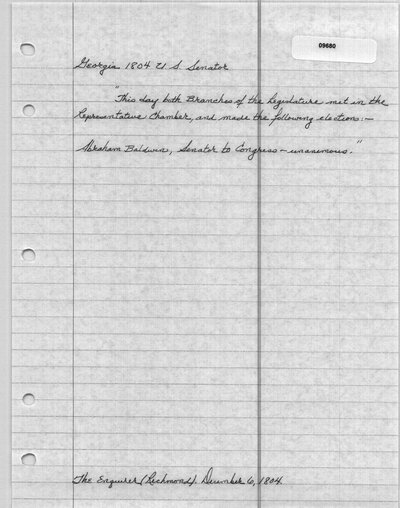 09680
Georgia 1804 U.S. Senator
"This day both Branches of the Legislature met in the
Representative Chamber, and made the following elections:—
Abraham Baldwin, Senator to Congress — unanimous."
The Enquirer (Richmond). December 6, 1804.